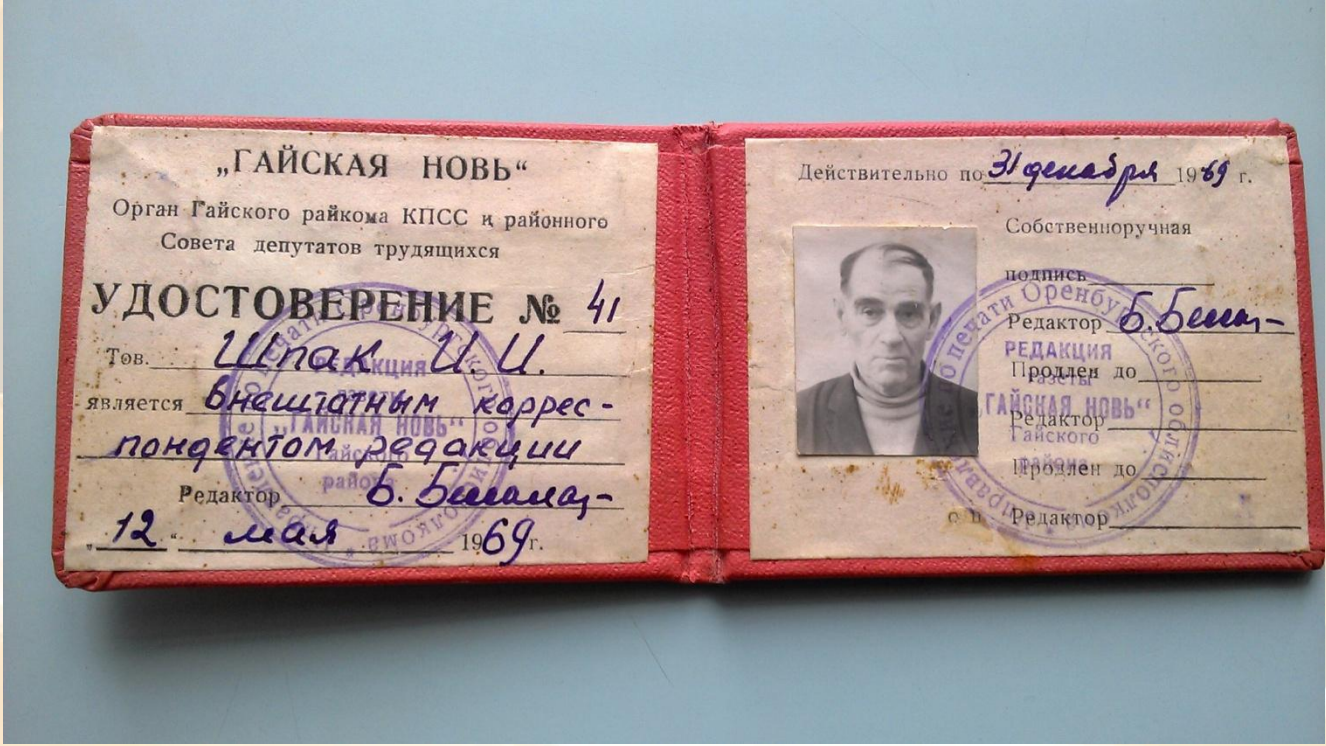 „ГАЙСКАЯ НОВЬ“
Орган Гайского райкома КПСС и районного
Совета депутатов трудящихся
УДОСТОВЕРЕНИЕ № 41
Тов. Шпак И. И.
является внештатным коррес-
пондентом редакции
Редактор Б.
„12“ мая 1969 г.
Действительно по 31 декабря 1969 г.
Собственноручная
подпись
Редактор Б.
Продлен до
Редактор
Продлен до
Редактор
печати Оренбургского облисполкома
РЕДАКЦИЯ
газеты
„ГАЙСКАЯ НОВЬ“
Гайского
района